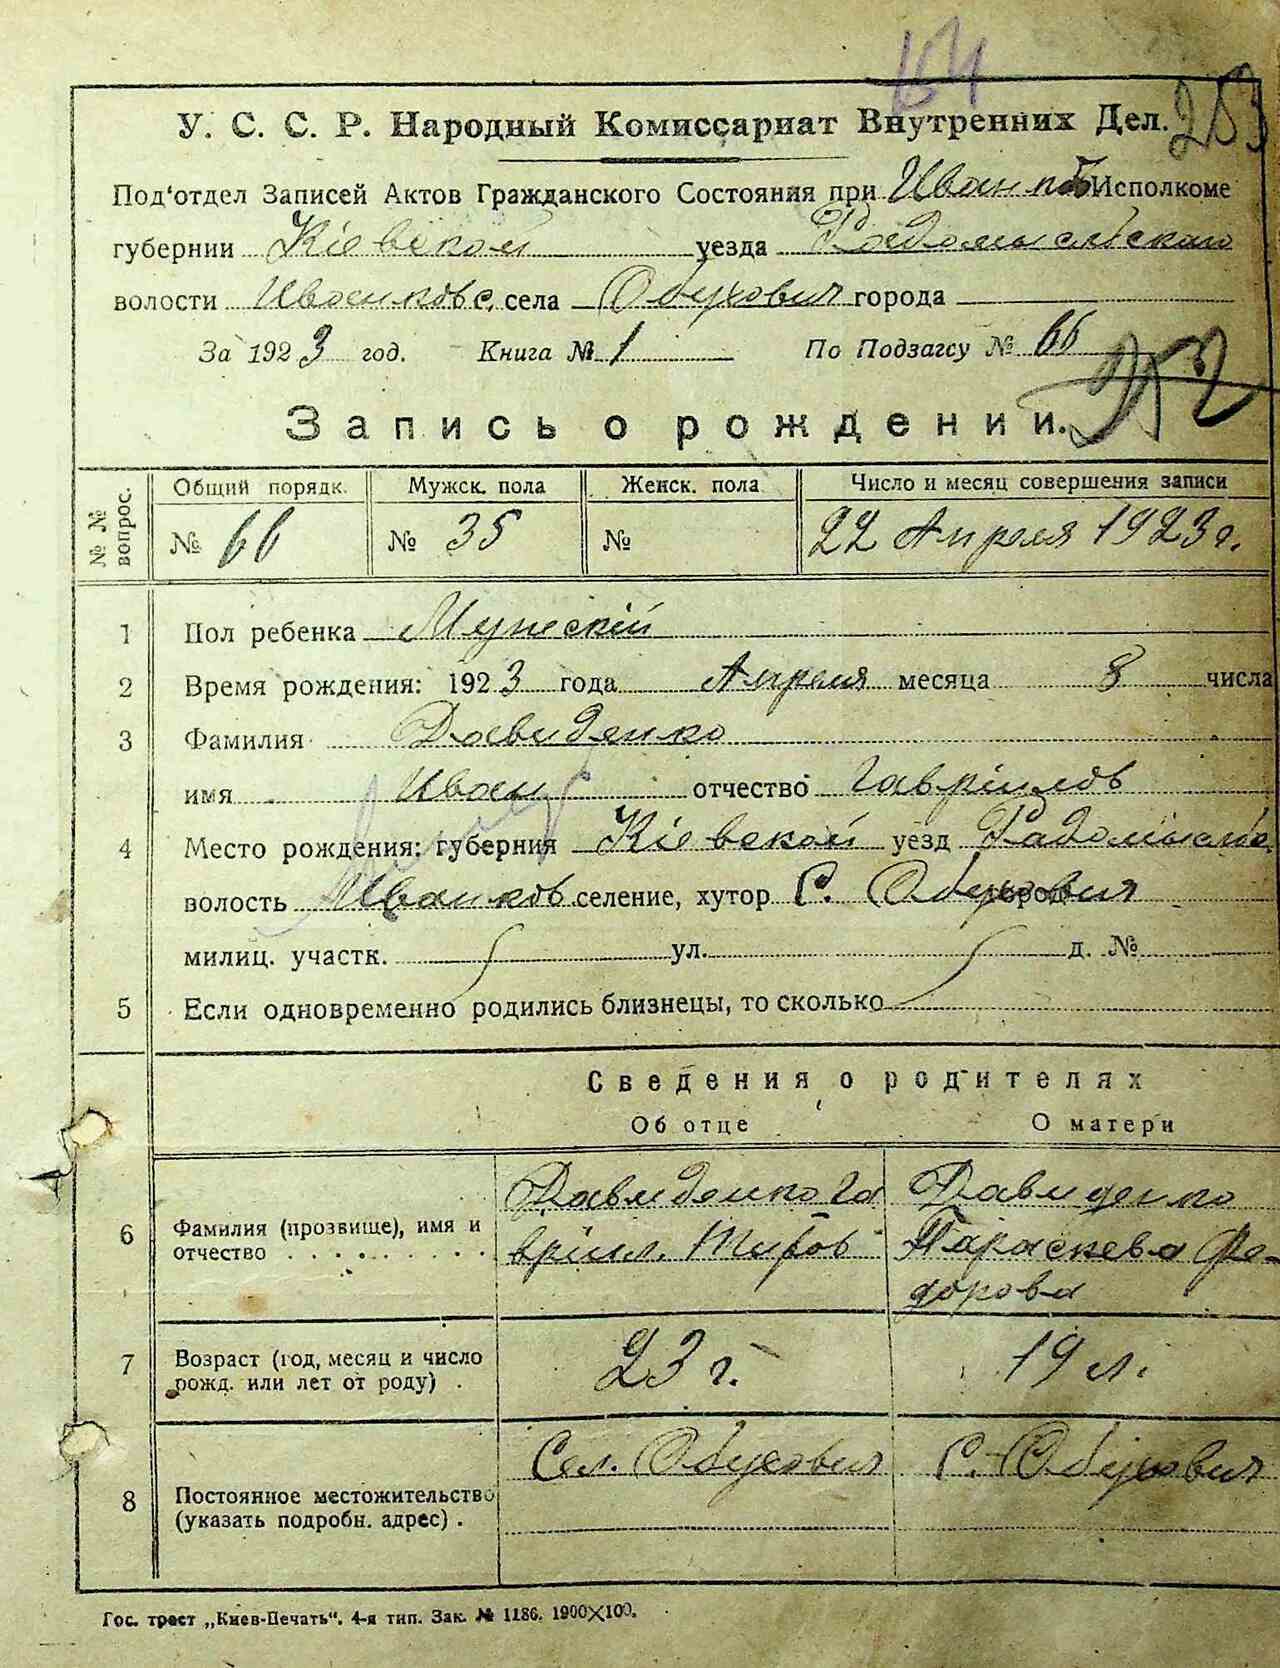 У. С. С. Р. Народный Комиссариат Внутренних Дел. 253
Под'отдел Записей Актов Гражданского Состояния при Исполкоме
губернии Кіевской уезда Радомысльскаго
волости Иванковс. села Обуховичи города
За 1923 год. Книга № 1 По Подзагсу № 66
252
Запись о рождении.
№ № вопрос. Общий порядк. Мужск. пола Женск. пола Число и месяц совершения записи
№ 66 № 35 № 22 Апреля 1923 г.
1 Пол ребенка Мужескій
2 Время рождения: 1923 года Апреля месяца 8 числа
3 Фамилия Давиденко
имя Иван отчество Гавріилов
4 Место рождения: губерния Кіевской уезд Радомысльс.
волость Иванков селение, хутор С. Обуховичи
милиц. участк. ул. д. №
5 Если одновременно родились близнецы, то сколько
Сведения о родителях
Об отце О матери
Давиденко Га Давиденко
6 Фамилия (прозвище), имя и отчество вріил. Титов Параскева Фе-
дорова
7 Возраст (год, месяц и число рожд. или лет от роду) . 23 г. 19 л.
Сел. Обуховичи С. Обуховичи
8 Постоянное местожительство
(указать подробн. адрес) .
Гос. трест „Киев-Печать“. 4-я тип. Зак. № 1186. 1900×100.